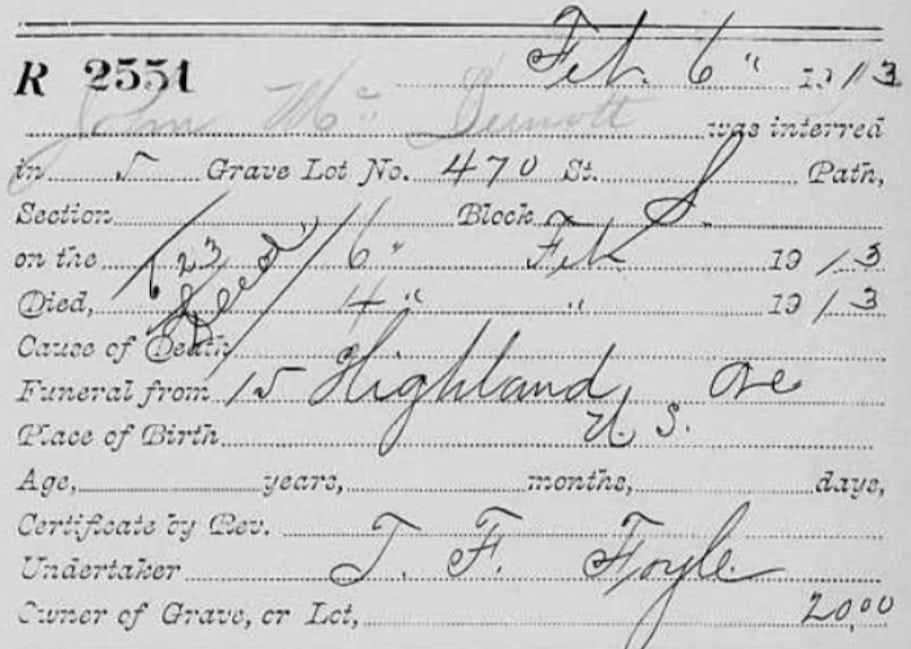 R 2551 Feb. 6" 1913
John Mc Dermott was interred
in 5 Grave Lot No. 470 St. Path,
Section Block S.
on the 6" Feb 1913
Died, 4" " 1913
Cause of Death
Funeral from 15 Highland Ave
Place of Birth U. S.
Age, years, months, days,
Certificate by Rev.
Undertaker T. F. Foyle
Owner of Grave, or Lot, 20,00